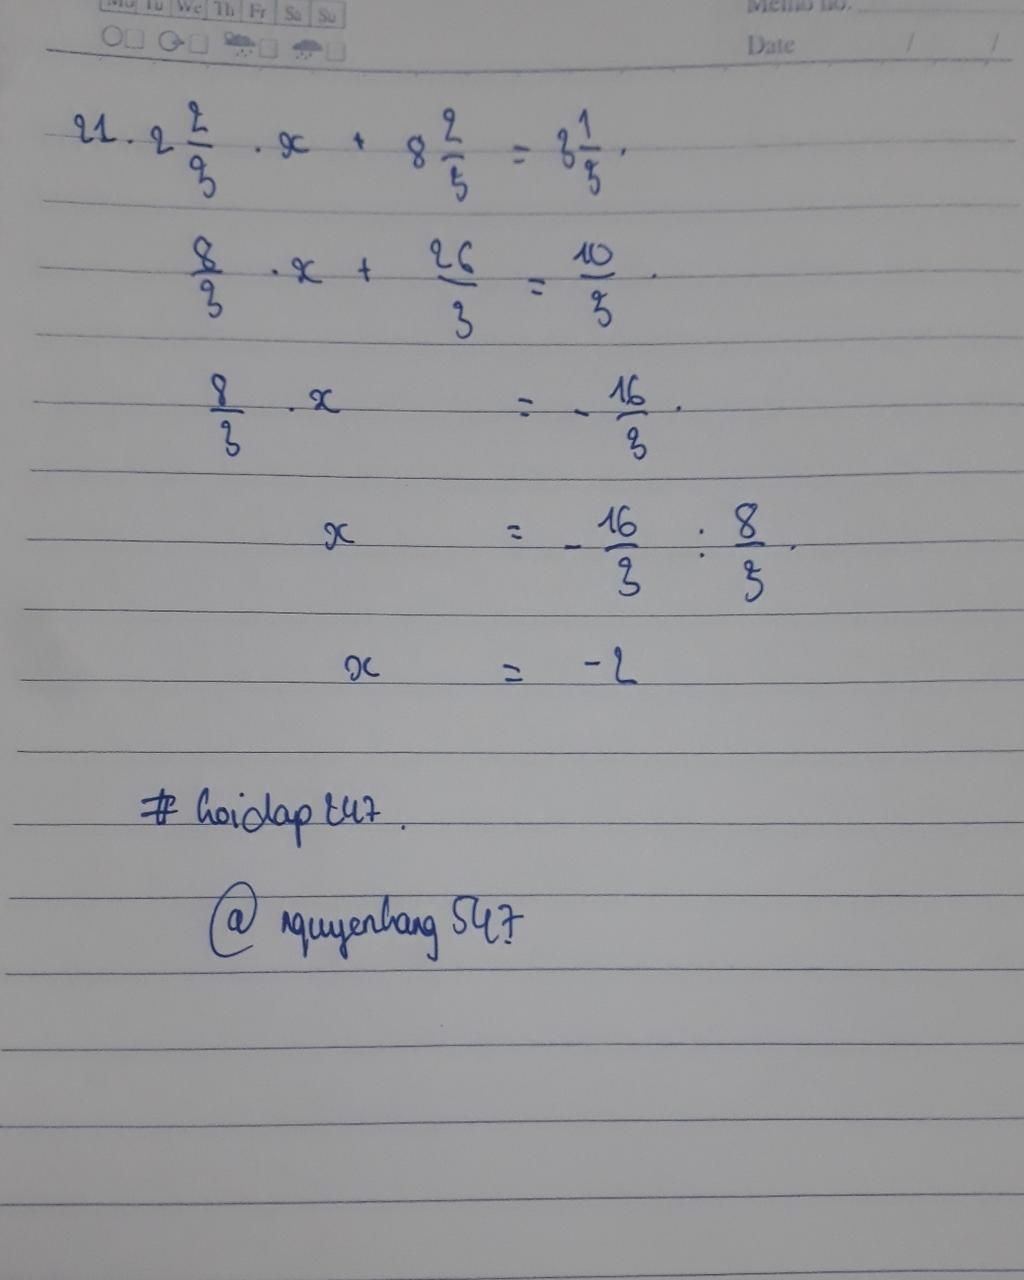 Mo Tu We Th Fr Sa Su
Memo no.
Date / /
21. 2 2/3 . x + 8 2/3 = 3 1/3.
8/3 . x + 26/3 = 10/3.
8/3 . x = - 16/3.
x = - 16/3 : 8/3.
x = -2
# hoidap247.
@ nguyenhang547